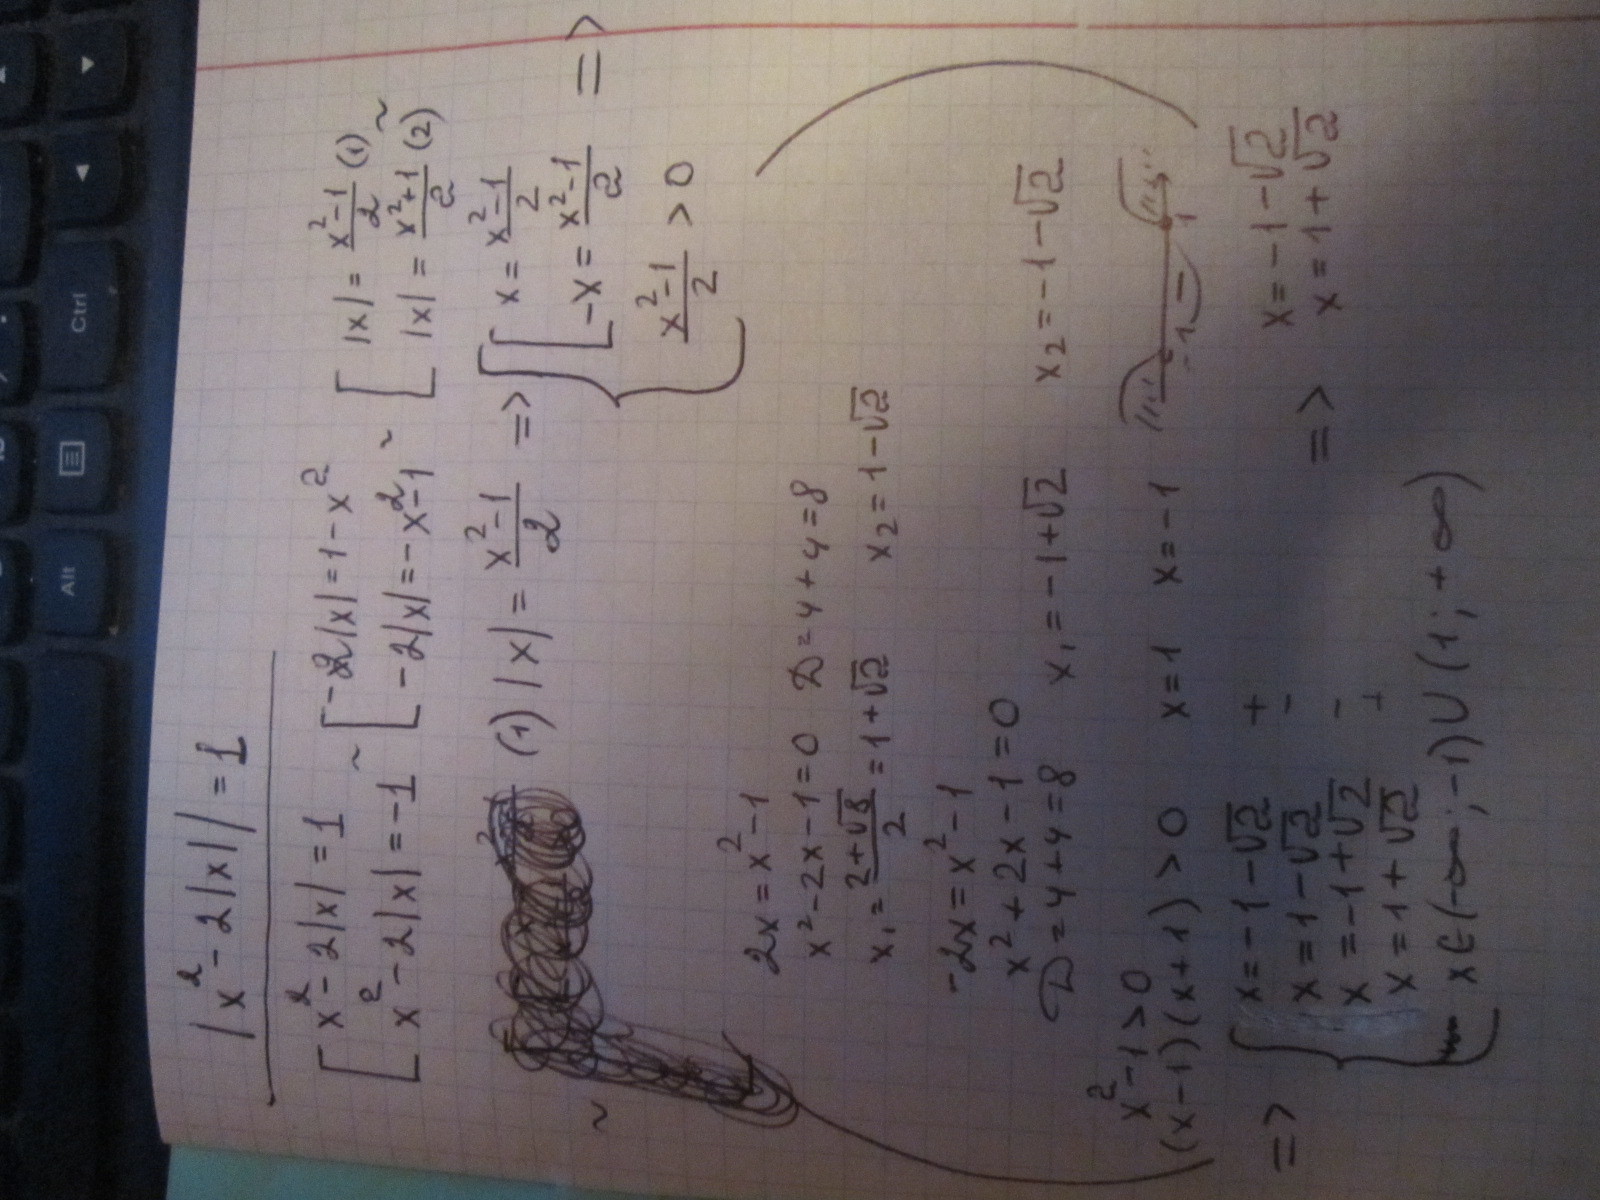 |x²-2|x||=1
[x²-2|x|=1 ~ [-2|x|=1-x² [|x|=x²-1/2 (1)
[x²-2|x|=-1 [-2|x|=-x²-1 ~ [|x|=x²+1/2 (2) ~
(1) |x|=x²-1/2 => {[x=x²-1/2
[-x=x²-1/2 =>
x²-1/2>0
~
2x=x²-1
x²-2x-1=0 D=4+4=8
x₁=2+√8/2=1+√2 x₂=1-√2
-2x=x²-1
x²+2x-1=0
D=4+4=8 x₁=-1+√2 x₂=-1-√2
x²-1>0
(x-1)(x+1)>0 x=1 x=-1 -1 - 1
=> {x=-1-√2 + x=-1-√2
x=1-√2 - => x=1+√2
x=-1+√2 -
x=1+√2 +
x∈(-∞;-1)∪(1;+∞)
Alt
Ctrl